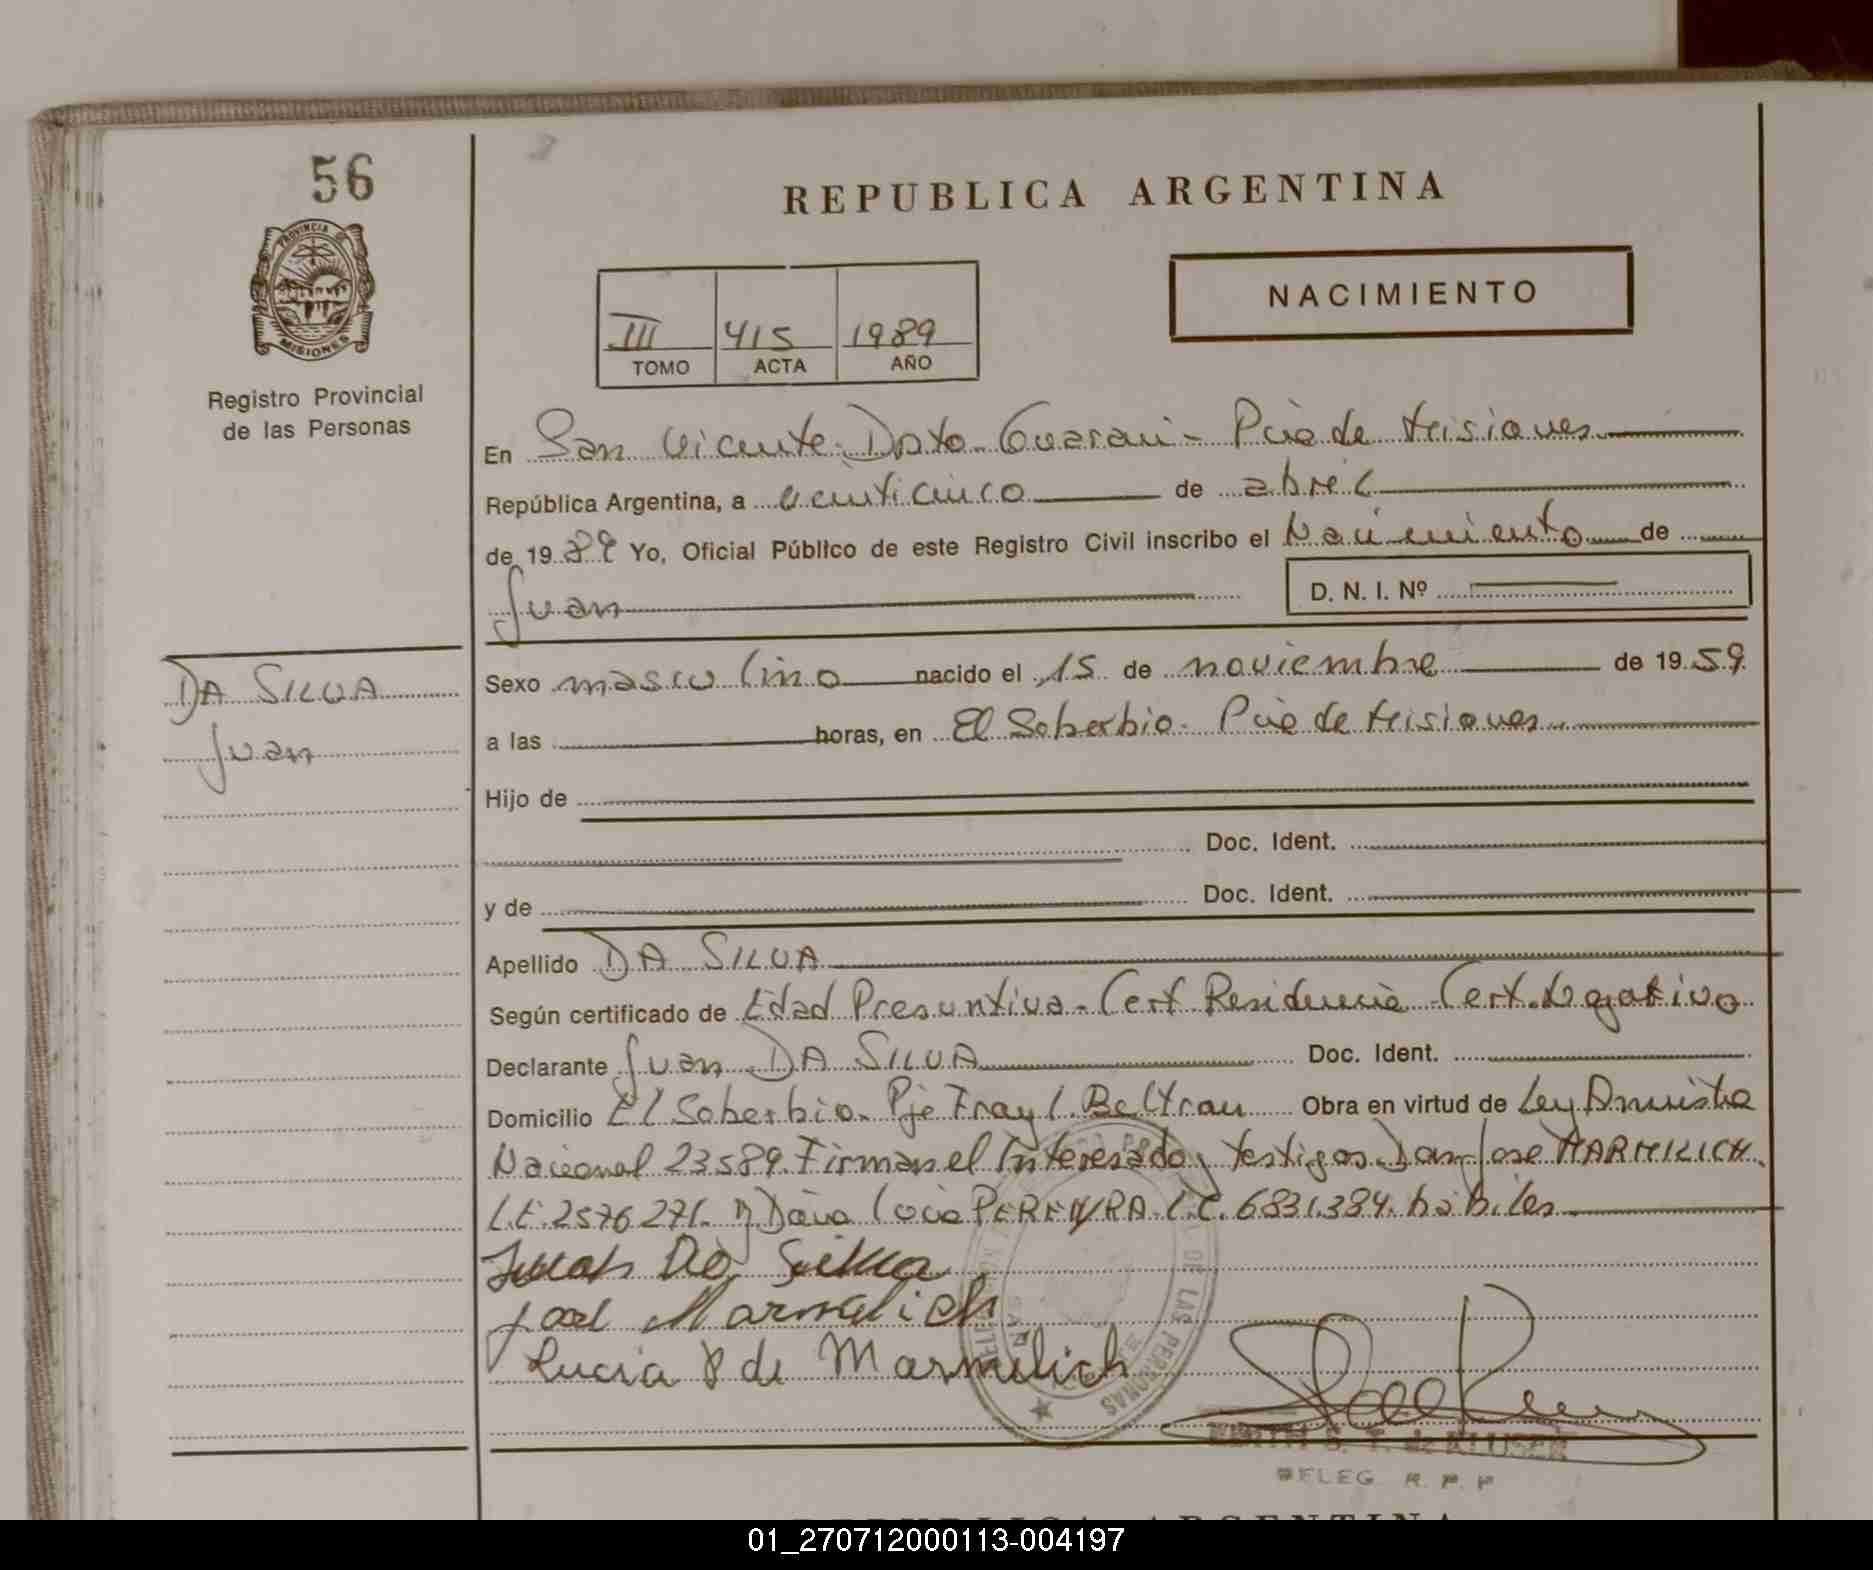 56
PROVINCIA DE
MISIONES
Registro Provincial
de las Personas
REPUBLICA ARGENTINA
NACIMIENTO
III 415 1989
TOMO ACTA AÑO
En San Vicente Dpto. Guarani - Pcia de Misiones
República Argentina, a veinticinco de abril
de 1989 Yo, Oficial Público de este Registro Civil inscribo el Nacimiento de
Juan D. N. I. Nº
DA SILVA
Juan
Sexo masculino nacido el 15 de noviembre de 1959.
a las horas, en El Soberbio - Pcia de Misiones
Hijo de
Doc. Ident.
y de Doc. Ident.
Apellido DA SILVA
Según certificado de Edad Presuntiva - Cert Residencia - Cert. Negativo
Declarante Juan DA SILVA Doc. Ident.
Domicilio El Soberbio - Pje Fray L. Beltran Obra en virtud de Ley Amnistia
Nacional 23589. Firman el Interesado y testigos Dan Jose MARMILICH
L.E. 2576271. y Doña Lucia PEREYRA L.C. 6831384. habiles
Juan Da Silva
José Marmelich
Lucia P de Marmelich
DE LAS PERSONAS
S. T. de KLUSER
DELEG. R. P. P
REPUBLICA ARGENTINA
01_270712000113-004197